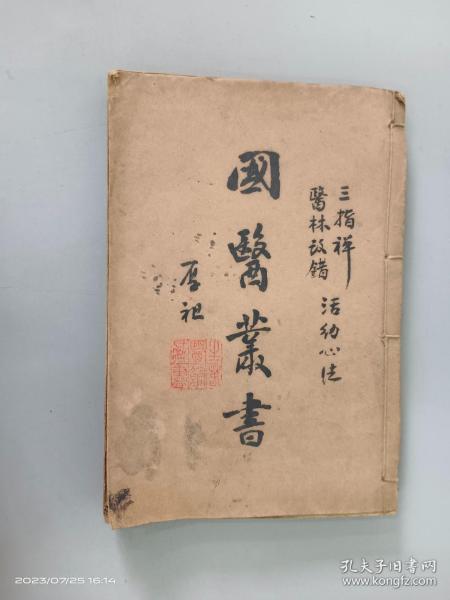 三指禅
醫林改錯
活幼心法
國醫叢書
厚祀
2023/07/25 16:14
孔夫子旧书网
www.kongfz.com